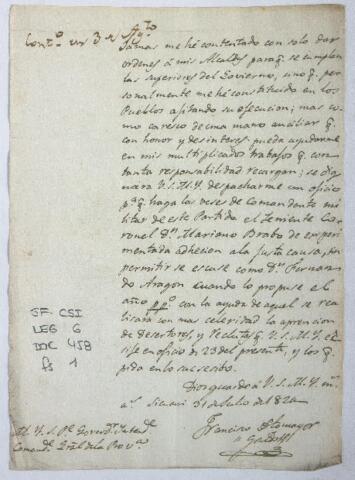 Cont.o en 3 de Ag.to
Jamas me hé contentado con solo dar
ordenes á mis Alcaldes para q.e se cumplan
las superiores del Govierno, sino q.e per
sonalmente me hé constituido en los
Pueblos agitando su ejecucion; mas co
mo caresco de una mano auxiliar q.e
con honor y desinteres pueda ayudarme
en mis multiplicados trabajos q.e con
tanta responsabilidad recargan; se dig
nara V.S.M.Y. despacharme con oficio
p.a q.e haga las veses de Comandante mi
litar de este Partido el Teniente Cor
ronel d.n Mariano Brabo de experi
mentada adhecion a la justa causa, sin
permitir se escuse como d.n Fernan
do Aragon cuando lo propuse el
año pp.o con la ayuda de aquel se rea
lisara con mas celeridad la aprencion
de desertores, y reclutas q.e V.S.M.Y. e
xije en oficio de 23 del presente, y los q.e
pida en lo sucesivo.
Dios guarde á V.S.M.Y. m.s
a.s Sicuani 31 de Julio de 1824
Francisco
M.Y.S. P.e Governd.r Yntend.te
Comand.te Gral de la Prov.a
JF. CSJ
LEG 6
DOC 458
fs 1